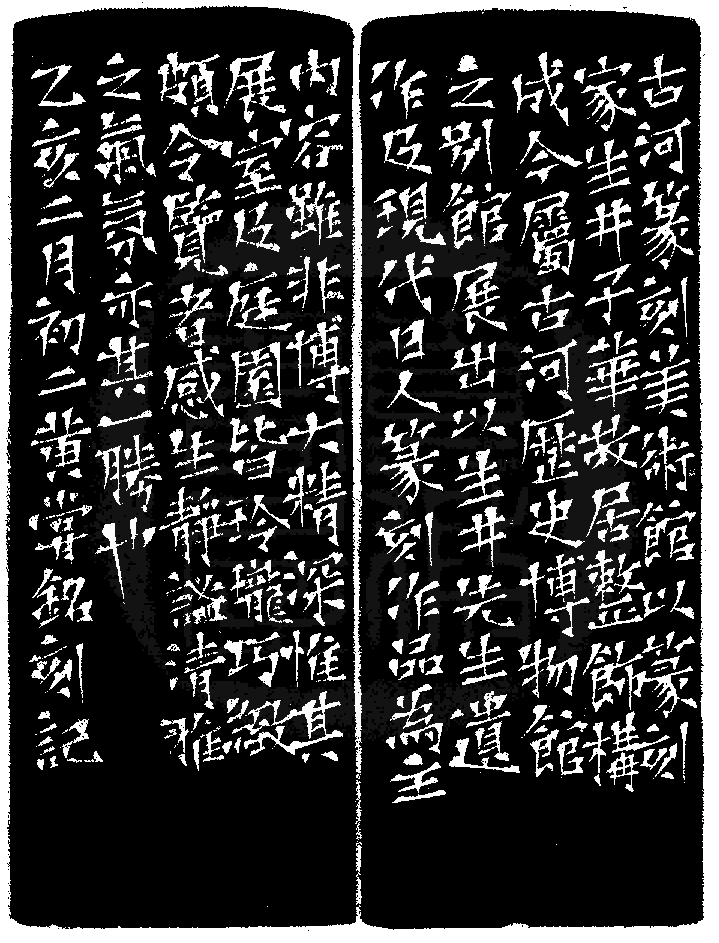 古河篆刻美術館以篆刻
家生井子華故居整飾構
成今屬古河歷史博物館
之別館展出以生井先生遺
作及現代日人篆刻作品為主
內容雖非博大精深惟其
展室及庭園皆玲瓏巧緻
頗令覽者感生靜謐清雅
之氣氛亦其一勝也
乙亥二月初二黃嘗銘刻記